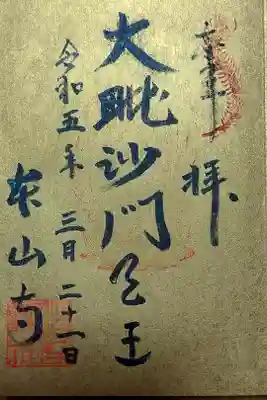 奉拝
大毗沙門天王
令和五年 三月二十一日
本山寺